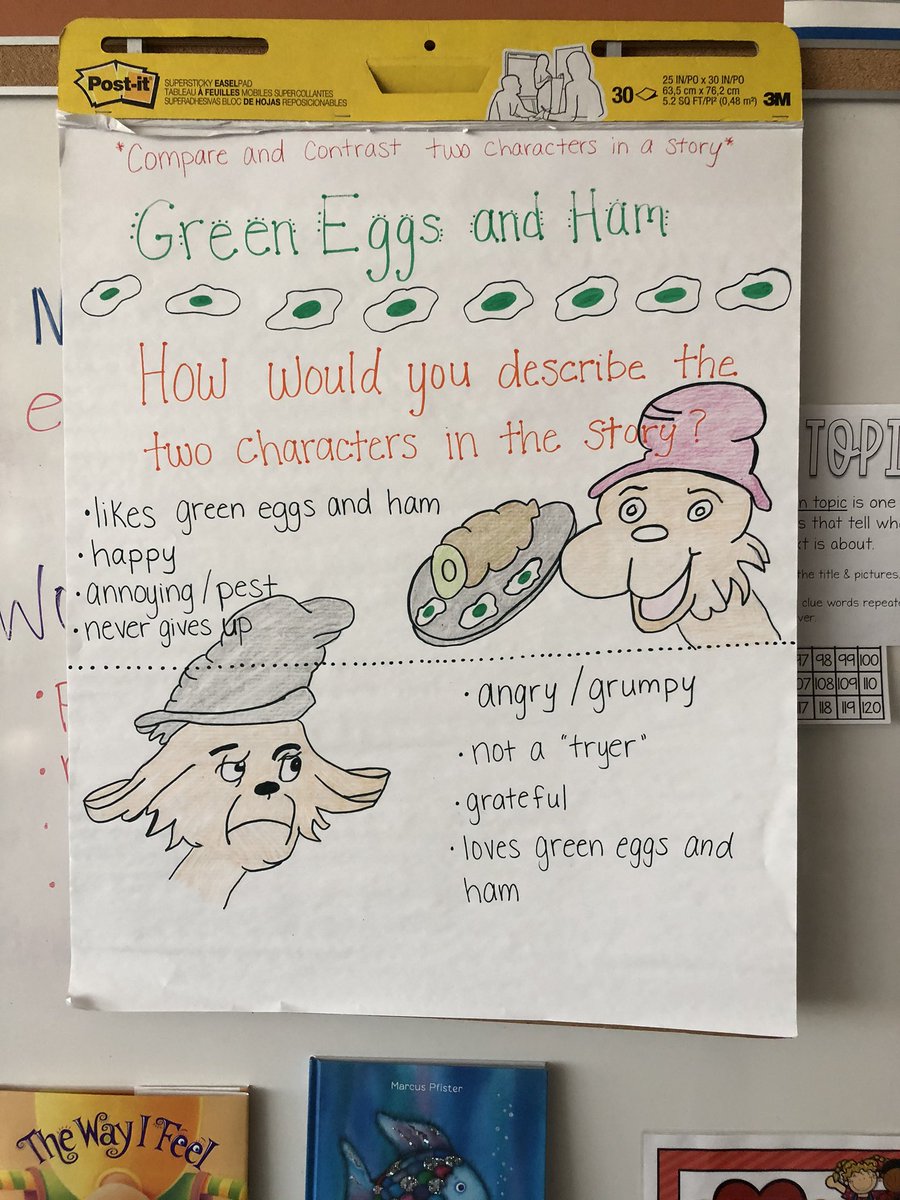 Post-it
SUPERSTICKY EASELPAD
TABLEAU À FEUILLES MOBILES SUPERCOLLANTES
SUPERADHESIVAS BLOC DE HOJAS REPOSICIONABLES
30
25 IN/PO x 30 IN/PO
63,5 cm x 76,2 cm
5.2 SQ FT/PI² (0,48 m²)
3M
*Compare and Contrast two characters in a story*
Green Eggs and Ham
How would you describe the
two characters in the story?
• likes green eggs and ham
• happy
• annoying/pest
• never gives up
• angry/grumpy
• not a "tryer"
• grateful
• loves green eggs and
ham
topic is one
that tell
is about.
the title & pictures.
clue words
98 99 100
108 109 110
118 119 120
The Way I Feel
Marcus Pfister